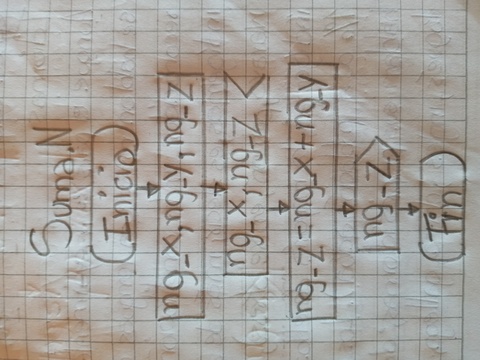 Suma.N
Inicio
ng_x,ng_y,ng_z
ng_x, ng_z
ng_z=ng_x+ng_y
ng_z
Fin